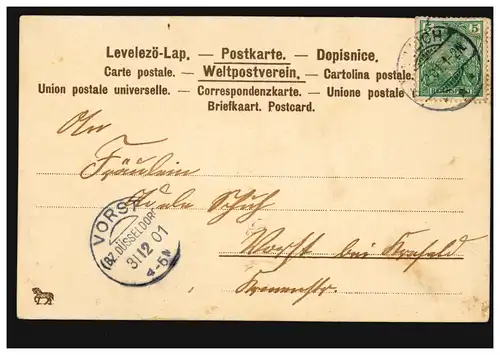 Levelezö-Lap. — Postkarte. — Dopisnice.
Carte postale. — Weltpostverein. — Cartolina postale.
Union postale universelle. — Correspondenzkarte. — Unione postale
Briefkaart. Postcard.
5
An
Fräulein
VORST
(BZ. DÜSSELDORF)
31 12 01
4-5N
Vorst bei Krefeld